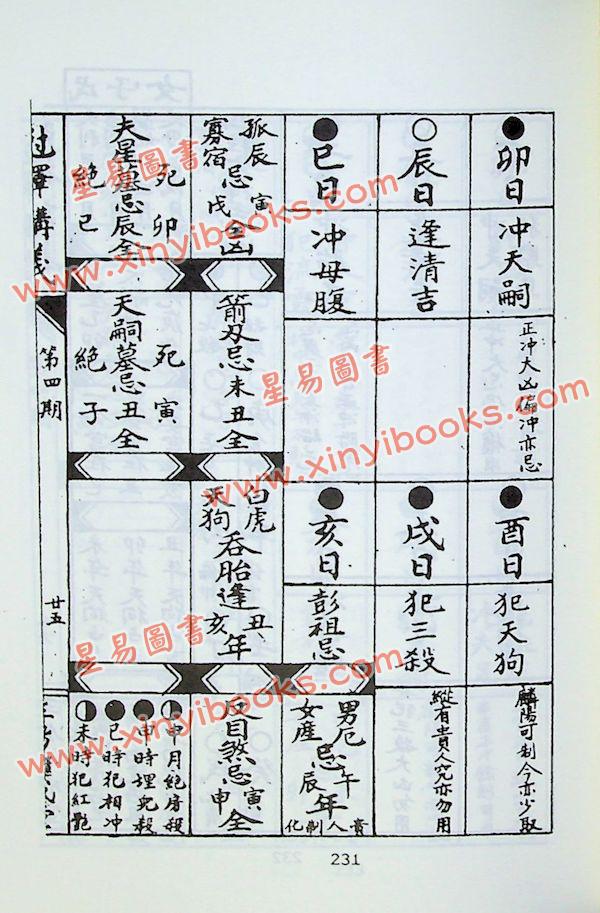 卯日
冲天嗣
正冲大凶偏冲亦忌
辰日
逢清吉
巳日
冲母腹
酉日
犯天狗
麟陽可制今亦少取
戌日
犯三殺
縱有貴人究亦勿用
亥日
彭祖忌
孤辰
寡宿
忌
寅
戌
凶
箭刃忌未丑全
白虎
天狗
吞胎逢
丑
亥
年
男厄
女產
忌
午
辰
年
貴人制化
反目煞忌
寅
申
全
夫星墓忌辰全
死卯
絕巳
天嗣墓忌丑全
死寅
絕子
申月絕房殺
申時埋兒殺
巳時犯相冲
未時犯紅艷
第四期
廿五
231
星易圖書
www.xinyibooks.com
星易圖書
www.xinyibooks.com
星易圖書
www.xinyibooks.com